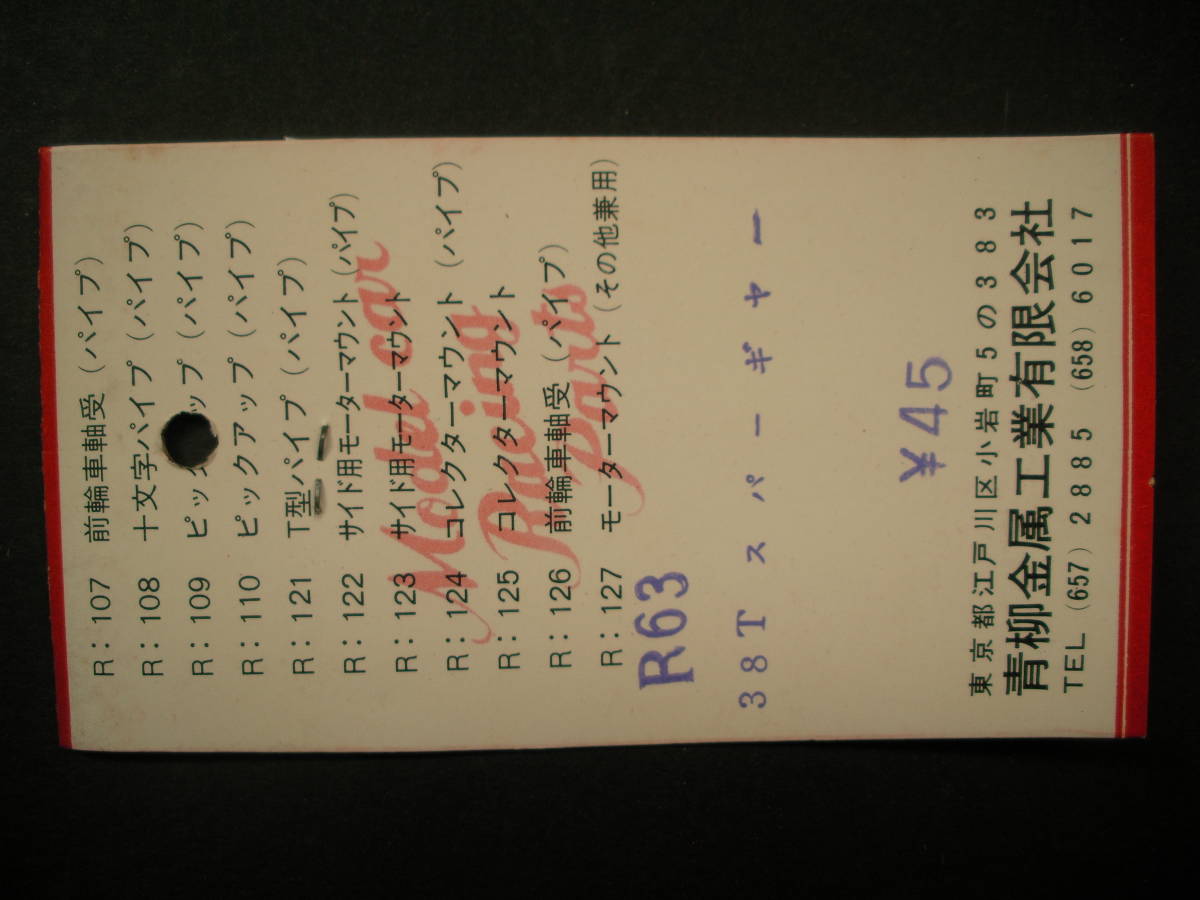 R：107 前輪車軸受（パイプ）
R：108 十文字パイプ（パイプ）
R：109 ピッ ップ（パイプ）
R：110 ピックアップ（パイプ）
R：121 T型パイプ（パイプ）
R：122 サイド用モーターマウント（パイプ）
R：123 サイド用モーターマウント
R：124 コレクターマウント（パイプ）
R：125 コレクターマウント
R：126 前輪車軸受（パイプ）
R：127 モーターマウント（その他兼用）
Model car
Racing
Parts
R63
38T スパーギヤー
¥45
東京都江戸川区小岩町5の383
青柳金属工業有限会社
TEL (657) 2885 (658) 6017